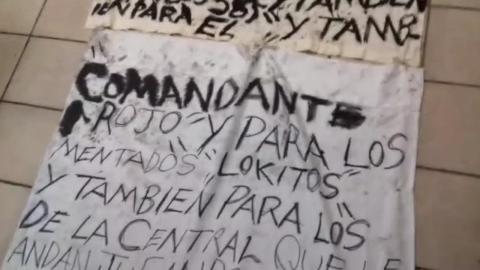 TAMBIEN
IEN PARA EL " Y TAMB
"COMANDANTE
ROJO" Y PARA LOS
MENTADOS "LOKITOS"
Y TAMBIEN PARA LOS
DE LA CENTRAL QUE LE
ANDAN